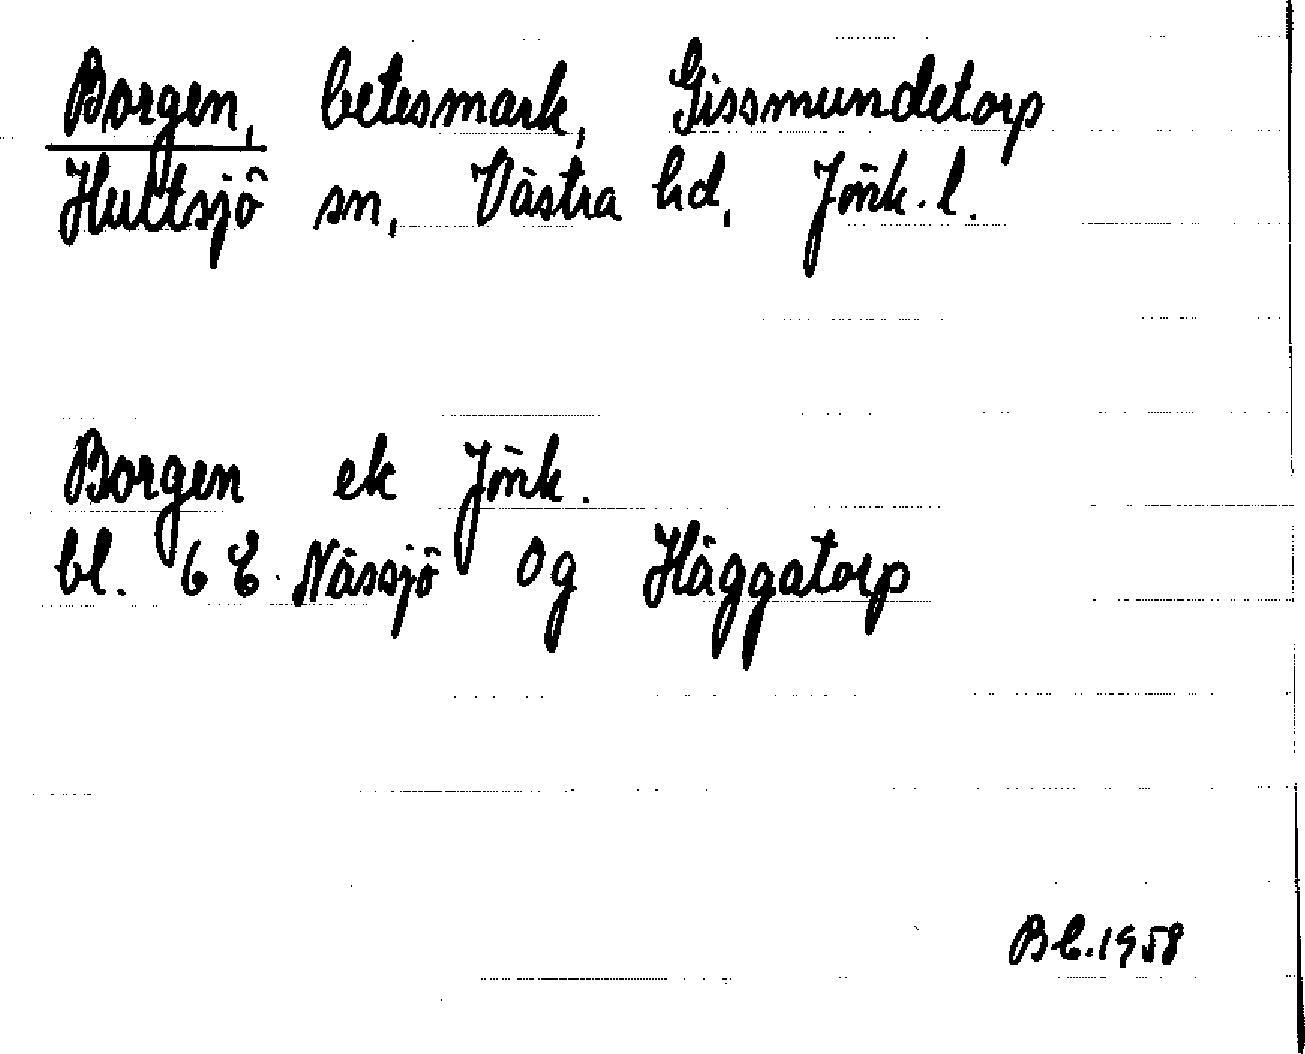 Borgen, betesmark, Gissmundetorp
Hultsjö sn, Västra hd, Jönk. l.
Borgen ek Jönk.
bl. 6 E Nässjö 0g Häggatorp
BE.1958